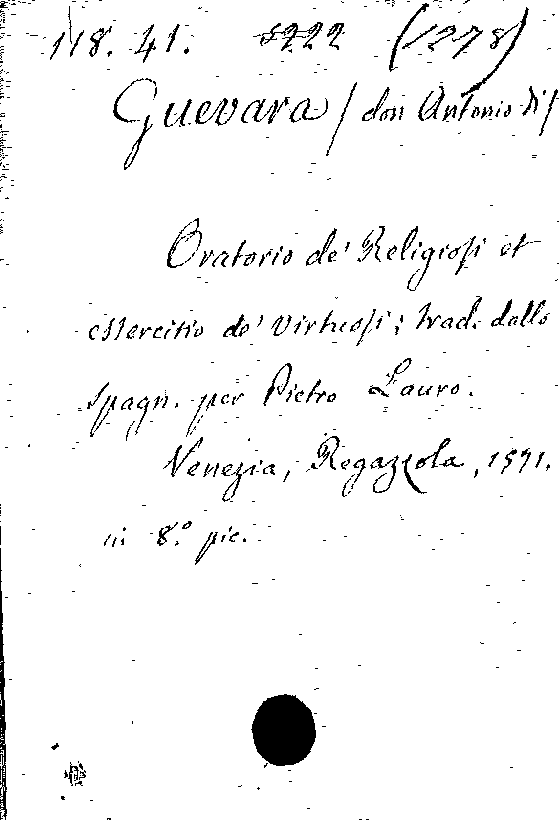 118. 41. 5222 (1278)
Guevara / don Antonio di /
Oratorio de' Religiosi et
essercitio de' virtuosi; trad. dallo
spagn. per Pietro Lauro.
Venezia, Regazzola, 1571.
in 8.º pic.